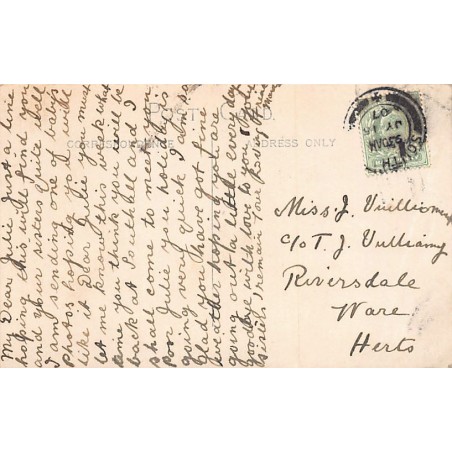 POST CARD
CORRESPONDENCE
ADDRESS ONLY
My Dear Julie Just a line
hoping this will find you
and your sisters Quite well
I am sending one of babys
photos hoping you will
like it Dear Julie you must
let me know this week what
time you think you will be
back at Southall and I
shall come to meet you
Poor Julie your holiday is
going very quick I am so
Glad you have got fine
weather hoping you are
going out a little every day
Goodbye with love to you &
remain your
Miss J. Vulliamy
c/o T. J. Vulliamy
Riversdale
Ware
Herts
JY
07